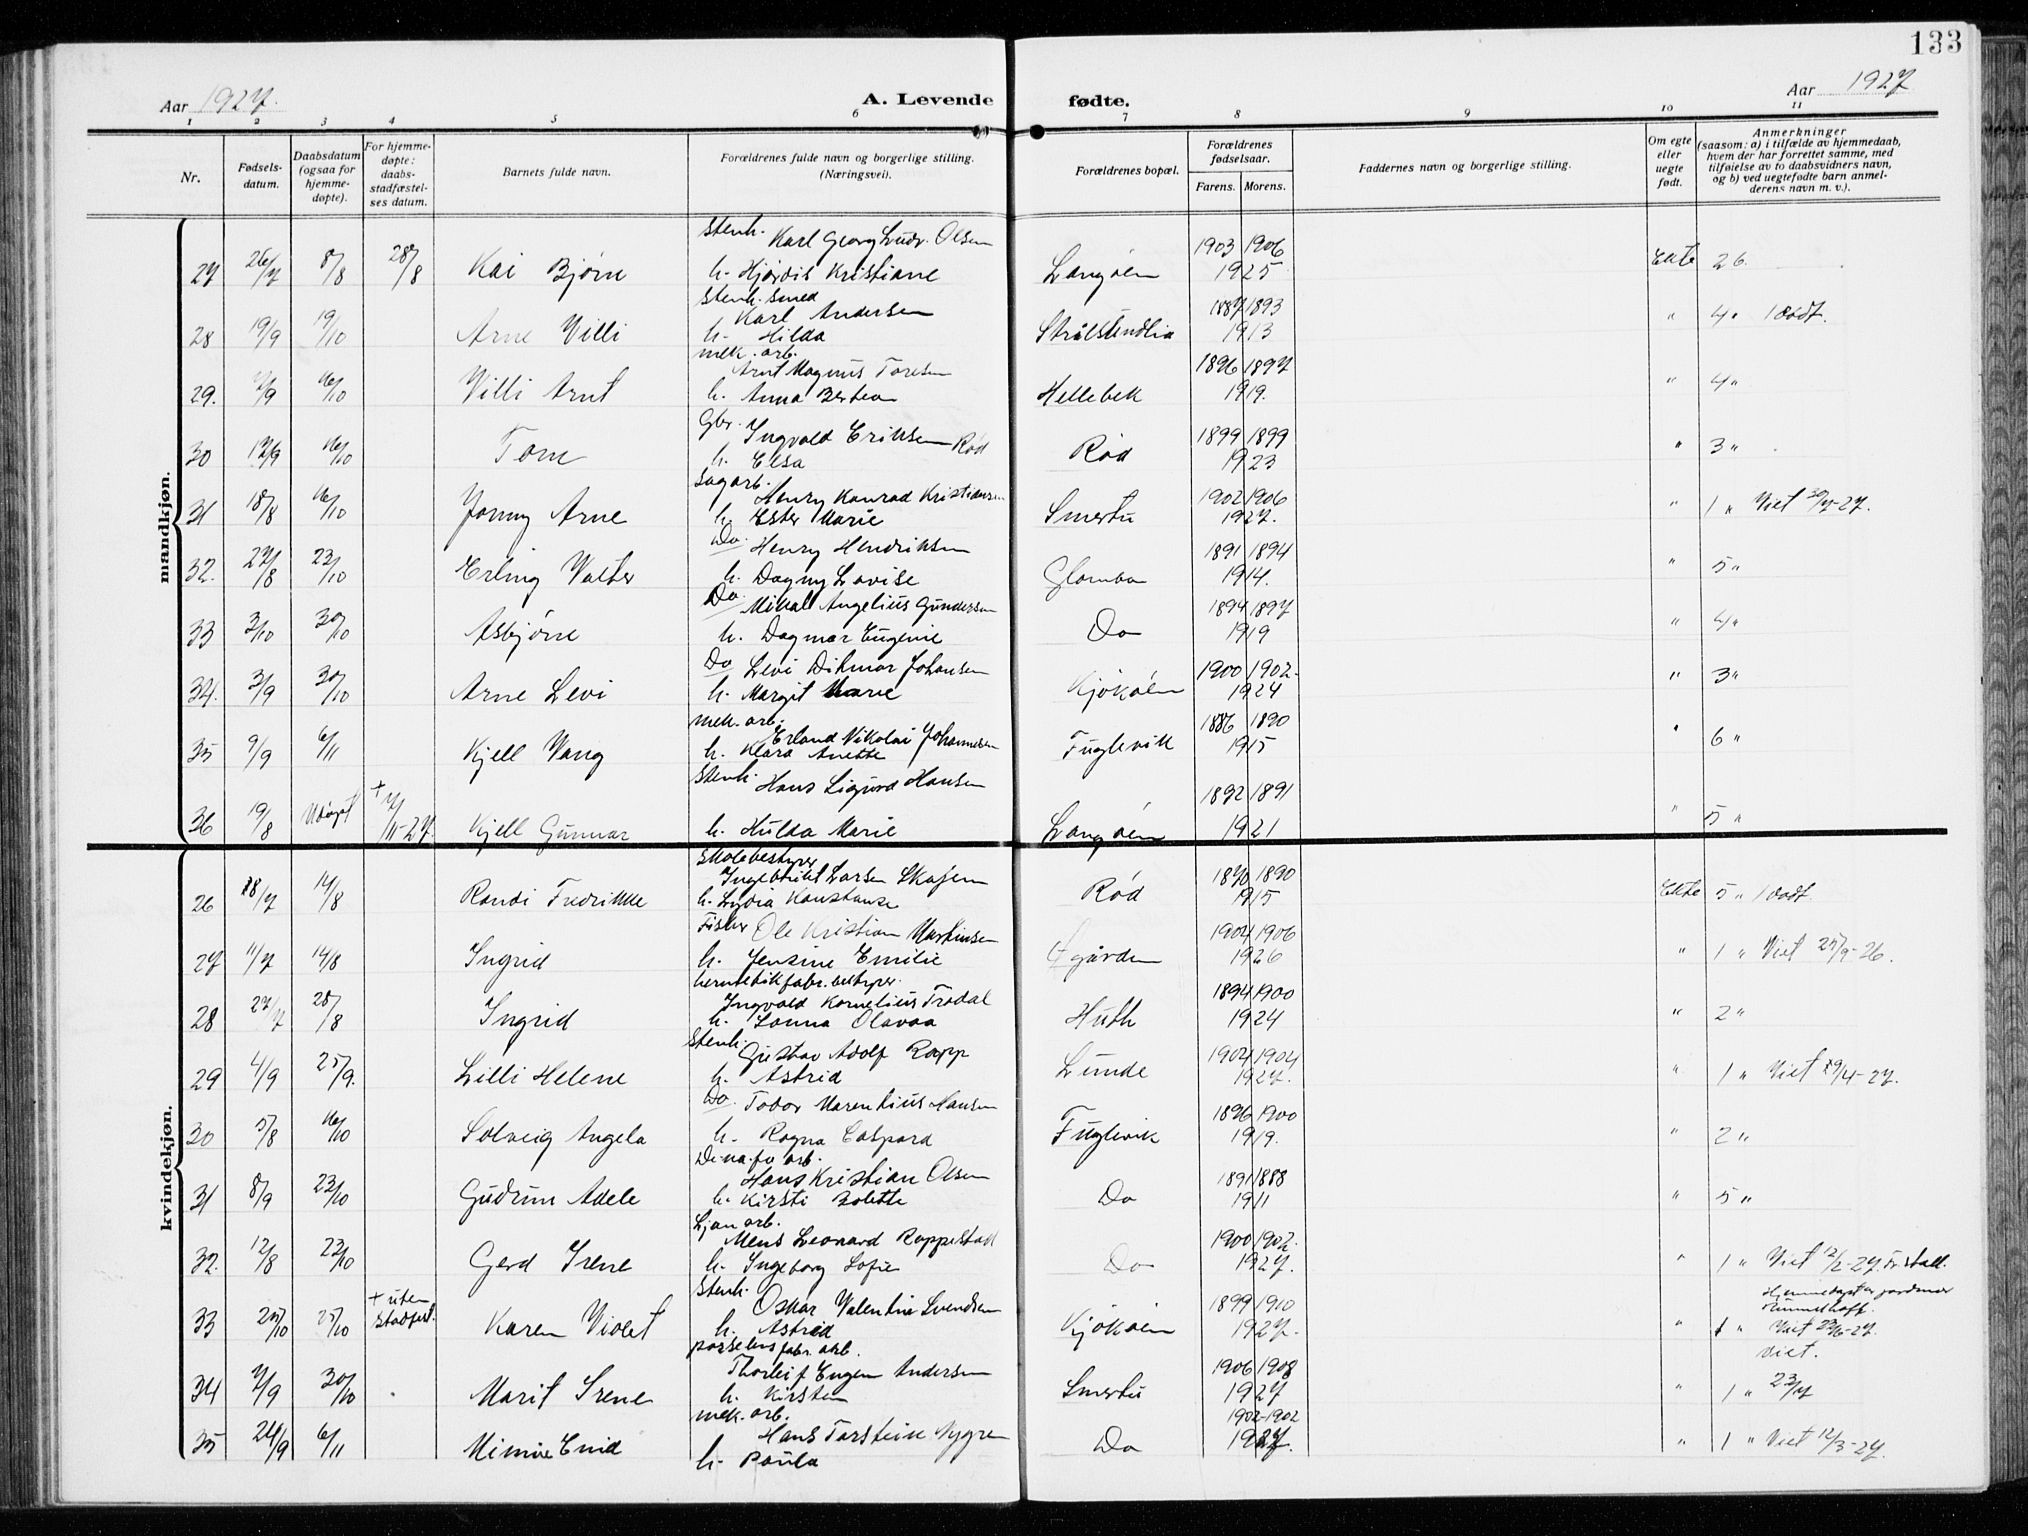 133
Aar 1927.
A. Levende fødte.
Aar 1927
1 2 3 4 5 6 7 8 9 10 11
Nr.
Fødsels-datum.
Daabsdatum (ogsaa for hjemme-døpte).
For hjemme-døpte: daabs-stadfæstel-ses datum.
Barnets fulde navn.
Forældrenes fulde navn og borgerlige stilling. (Næringsvei).
Forældrenes bopæl.
Forældrenes fødselsaar.
Farens. Morens.
Faddernes navn og borgerlige stilling.
Om egte eller uegte født.
Anmerkninger (saasom: a) i tilfælde av hjemmedaab, hvem der har forrettet samme, med tilføielse av to daabsvidners navn, og b) ved uegtefødte barn anmel-derens navn m. v.).
mandkjøn.
Stenh. Karl Georg Ludv. Olsen 1903 1906
27 26/7 8/8 28/8 Kai Bjørn h. Hjørdis Kristiane Langøen 1925 Ekte 26.
Stenh. smed Karl Andersen 1887 1893
28 19/9 19/10 Arne Villi h. Hilda 1913 " 4 " 1 dødf.
mek. arb. Arnt Magnus Toresen 1896 1897
29. 7/9 16/10 Villi Arnt h. Anna Bertea Hellebek 1919. " 4 "
Gbr. Ingvald Eriksen Rød 1899 1899
30 12/9 16/10 Tom h. Elsa Rød 1923 " 3 "
Sagarb. Henry Konrad Kristiansen 1902 1906
31 18/8 16/10 Jonny Arne h. Ester Marie Smertu 1927. " 1 " Viet 30/7-27.
Do. Henry Hendriksen 1891 1894
32. 27/8 23/10 Erling Walter h. Dagny Lovise Glomba 1914. " 5 "
Do. Mikal Angelius Gundersen 1894 1897
33 3/10 30/10 Asbjørn h. Dagmar Eugenie Do 1919 " 4 "
Do Levi Ditmar Johansen 1900 1902.
34. 3/9 30/10 Arne Levi h. Margit Marie Kjøkøen 1924 " 3 "
mek. arb. Erland Nikolai Johannesen 1886 1890
35 9/9 6/11 Kjell Vang h. Klara Anette Fuglevik 1915 " 6 "
Stenh. Hans Sigurd Hansen 1892 1891
36 19/8 Udøpt + 7/11-27. Kjell Gunnar h. Hulda Marie Langøen 1921 " 5 "
kvindekjøn.
Skolebestyrer Ingebrikt Larsen Skajem 1870 1890
26 18/7 14/8 Randi Fredrikke h. Lydia Konstanse Rød 1915 Ekte 5 " 1 dødf.
Fisker Ole Kristian Martinsen 1904 1906
27 11/7 14/8 Ingrid h. Jensine Emilie Øgården 1926 " 1 " Viet 25/9-26.
hermetikfabr. bestyrer. Ingvald Kornelius Trodal 1894 1900
28 27/7 28/8 Ingrid h. Lonna Olavaa Huth 1924 " 2 "
Stenh. Gustav Adolf Rapp 1904 1904
29 4/9 25/9. Lilli Helene h. Astrid Lunde 1927. " 1 " Viet 29/4-27.
Do. Todor Marentius Hansen 1896 1900
30 5/8 16/10 Solveig Angela h. Ragna Caspara Fuglevik 1919. " 2 "
Hans Kristian Olsen 1891 1888
31 8/9 23/10 Gudrun Adele h. Kirsti Bolette Do 1911 " 5 "
Ljan arb. Mens Leonard Roppestad 1900 1902.
32. 12/8 23/10 Gerd Irene h. Ingeborg Sofie Do 1927. " 1 " Viet 12/2-27.
Stenh. Oskar Valentin Svendsen 1899 1910
33 25/10 25/10 + uten stadfest. Karen Violet h. Astrid Kjøkøen 1927. " 1 " Viet 23/6-27.
porselensfabr. arb. Thorleif Eugen Andersen 1906 1908 Viet.
34 7/9 30/10 Marit Irene h. Kirsten Smertu 1927 " 1 " 23/7
mek. arb. Hans Torstein Nygren 1902-1902
35 24/9 6/11 h. Paula Do 1927. " 1 " Viet 12/3-27.